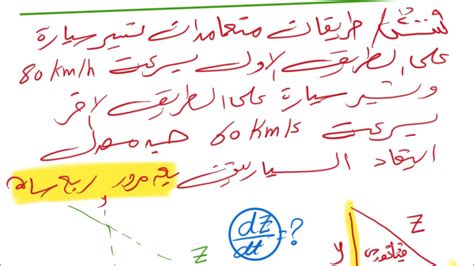 طريقان متعامدان تسير سيارة
على الطريق الاول بسرعت 80 km/h
وتسير سيارة على الطريق الاخر
بسرعت 60 km/s جد معدل
ابتعاد السيارتين بعد مرور ربع ساعة
y
dz/dt = ?
z
y
z
فيثاغورس